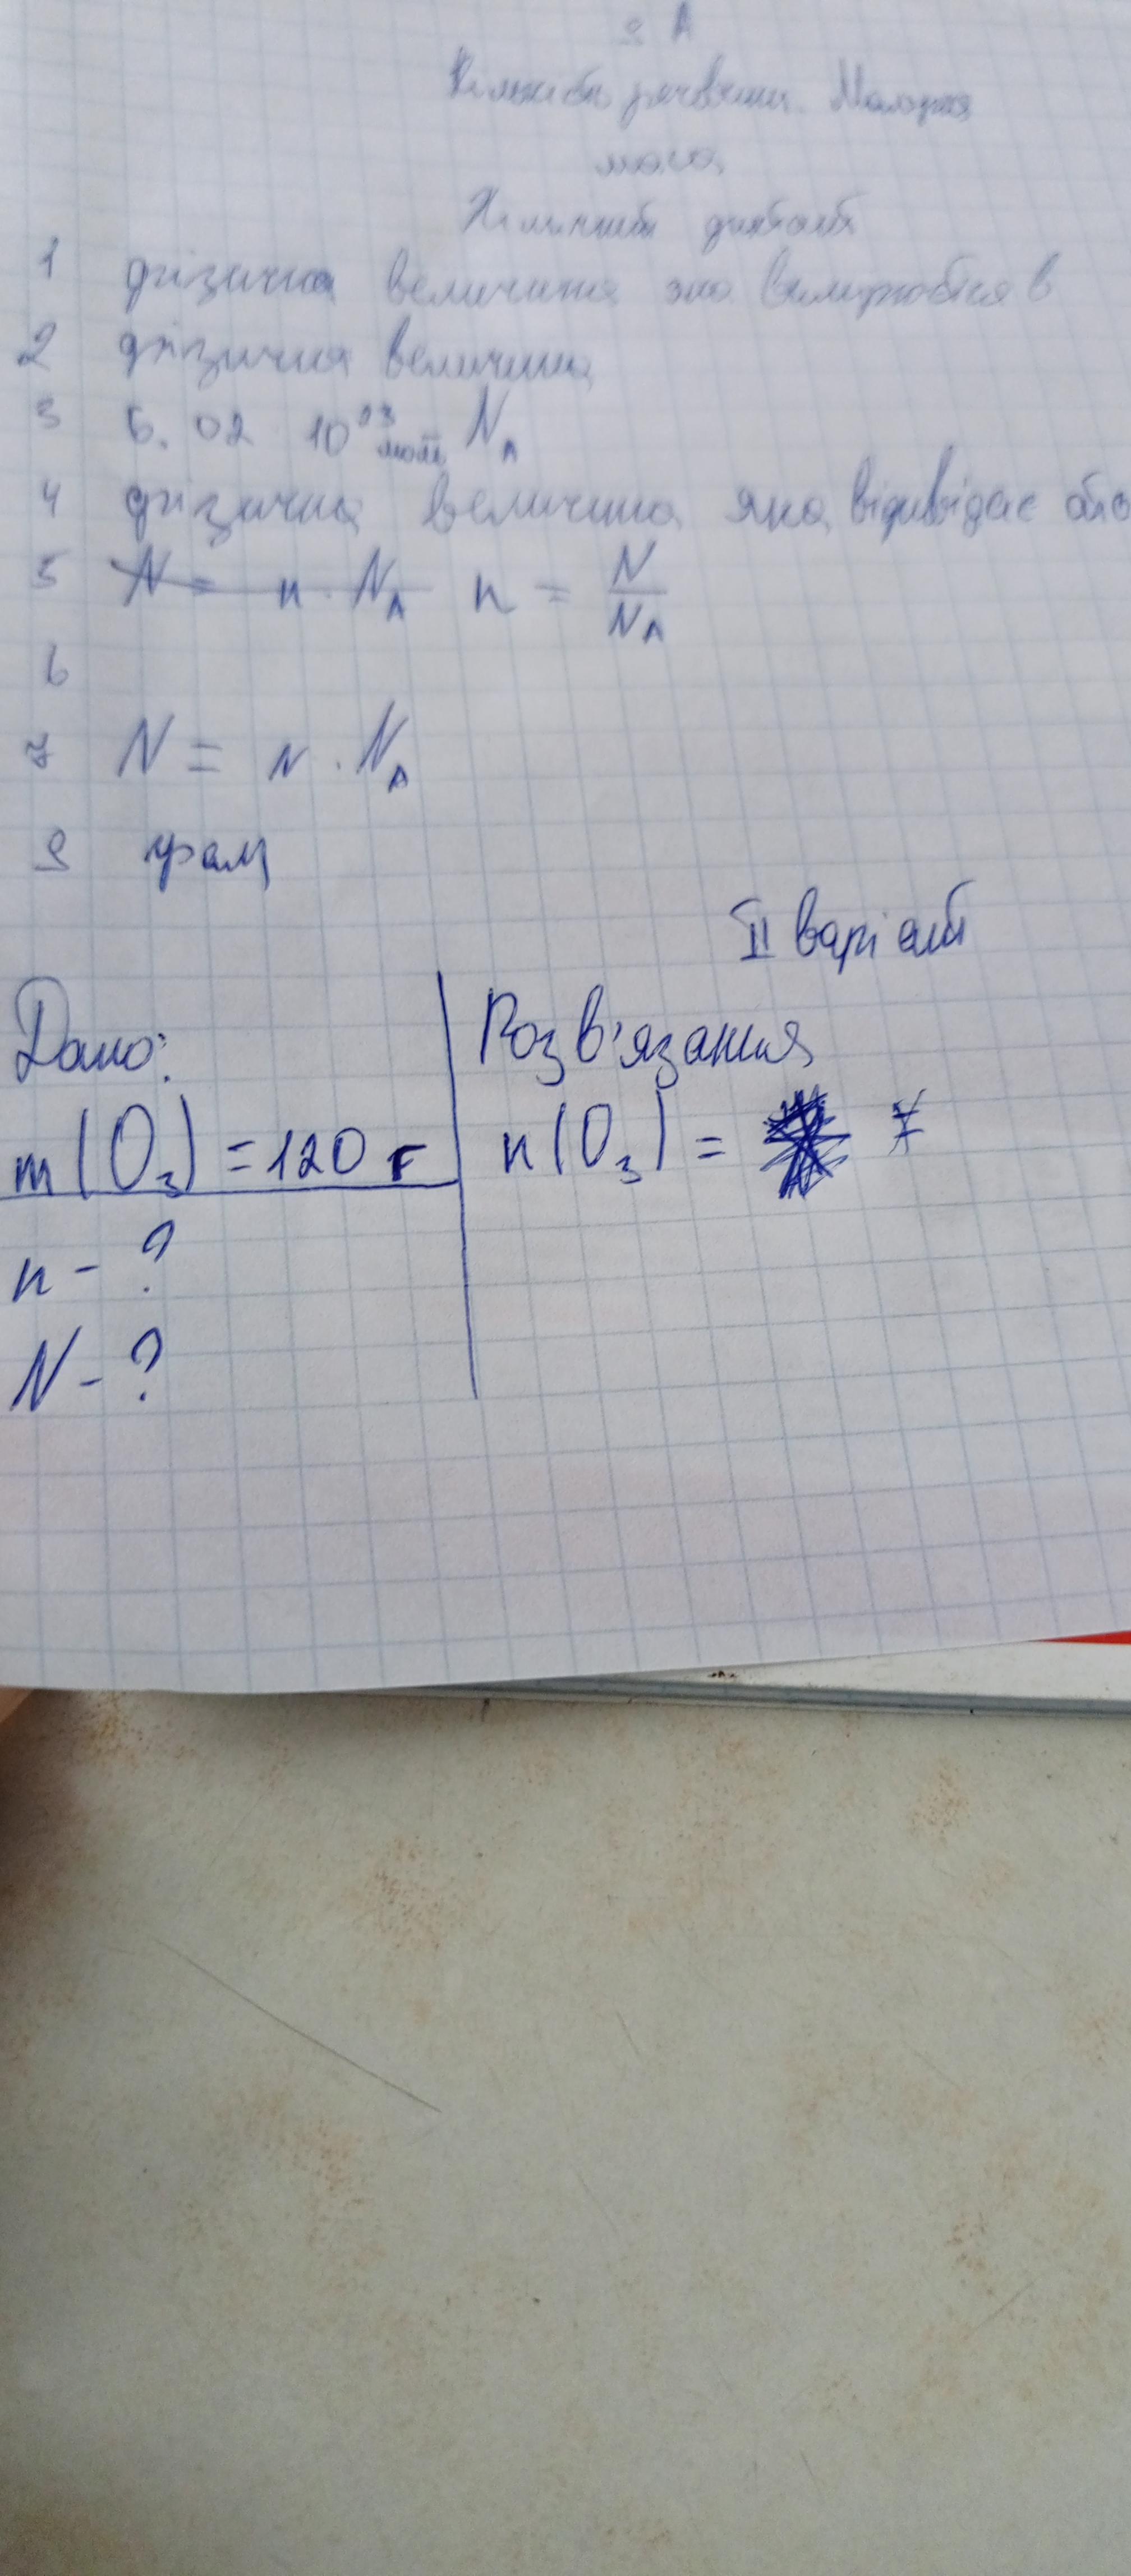 8 А
Кількість речовини. Молярна
маса
Хімічний диктант
1 фізична величина яка вимірюється в
2 фізична величина
3 6.02 10²³ моль N_A
4 фізична величина яка відповідає
5 N = n · N_A n = N/N_A
6
7 N = n · N_A
8 грам
II варіант
Дано:
m(O₃) = 120 г
n - ?
N - ?
Розв'язання
n(O₃) =